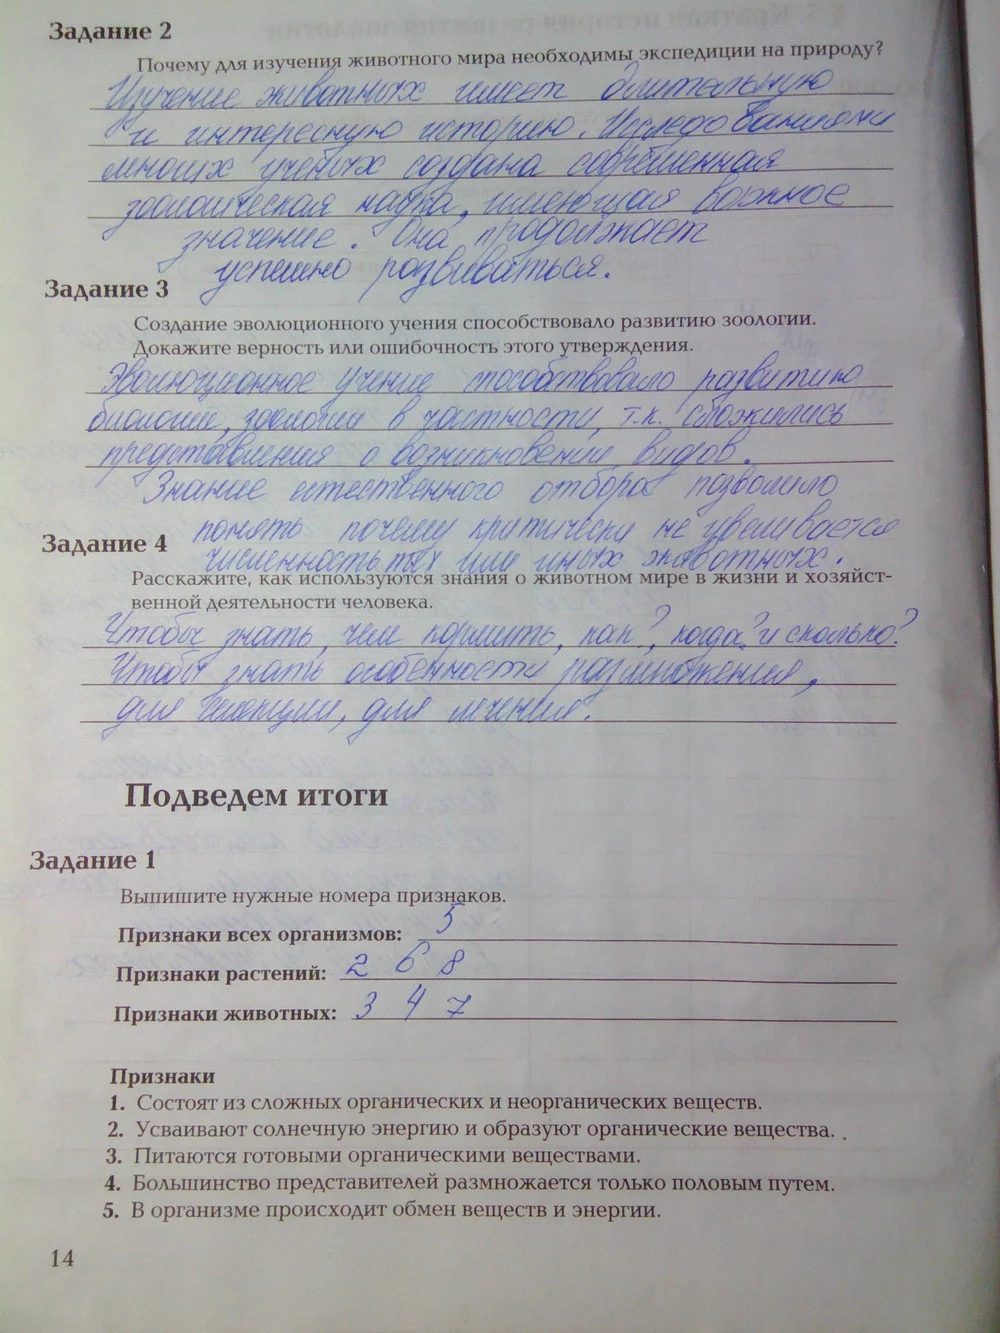 Задание 2
Почему для изучения животного мира необходимы экспедиции на природу?
Изучение животных имеет длительную
и интересную историю. Исследованиями
многих учёных создана современная
зоологическая наука, имеющая важное
значение. Она продолжает
успешно развиваться.
Задание 3
Создание эволюционного учения способствовало развитию зоологии.
Докажите верность или ошибочность этого утверждения.
Эволюционное учение способствовало развитию
биологии, зоологии в частности, т.к. сложились
представления о возникновении видов.
Знание естественного отбора позволило
понять почему критически не увеличивается
численность тех или иных животных.
Задание 4
Расскажите, как используются знания о животном мире в жизни и хозяйст-
венной деятельности человека.
Чтобы знать, чем кормить, как?, когда? и сколько?
Чтобы знать особенности размножения,
для селекции, для лечения.
Подведем итоги
Задание 1
Выпишите нужные номера признаков.
Признаки всех организмов: 5
Признаки растений: 2 6 8
Признаки животных: 3 4 7
Признаки
1. Состоят из сложных органических и неорганических веществ.
2. Усваивают солнечную энергию и образуют органические вещества.
3. Питаются готовыми органическими веществами.
4. Большинство представителей размножается только половым путем.
5. В организме происходит обмен веществ и энергии.
14